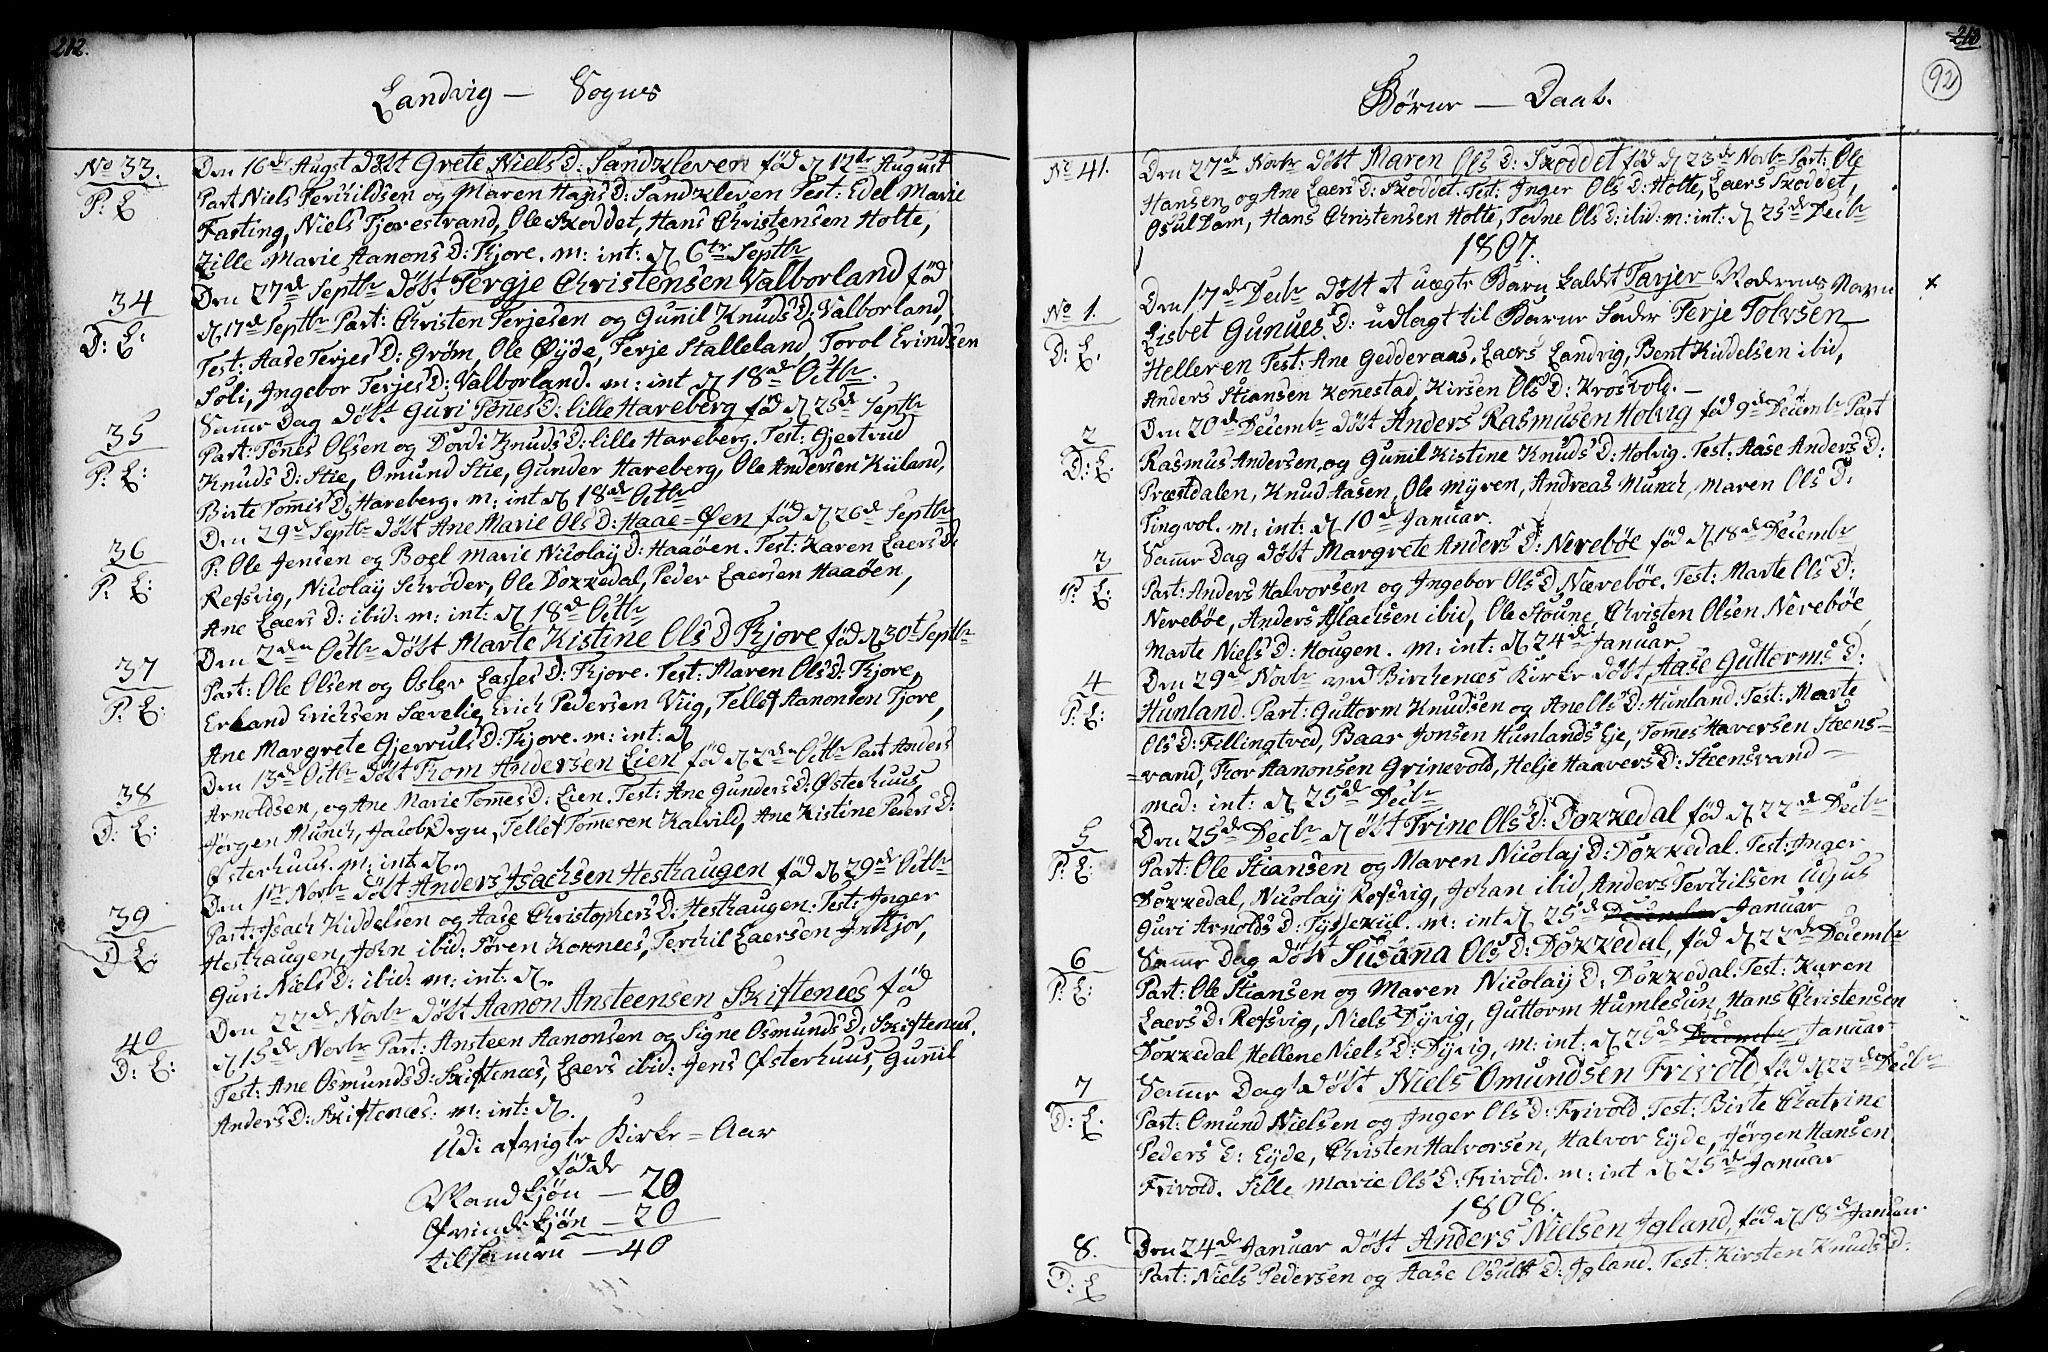 212.
Landvig — Sogns
No 33.
P: E
Den 16de Augst døbt Grete Niels D: Sandkleven fød d 12te August
Part Niels Terchildsen og Maren Hans D: Sandkleven Test: Edel Marie
Farting, Niels Fjorestrand, Ole Skoddet, Hans Christensen Holte,
Zille Marie Aanons D: Fjore. m: int: d 6te Septbr
34
D: E:
Den 27de Septbr døbt Tergje Christensen Valborland fød
d 17de Septbr Part: Christen Terjesen og Guñil Knuds D: Valborland,
Test: Aase Terjes D: Grøm, Ole Øÿde, Terje Stalleland, Torol Erindsen
Soli, Ingebor Terjes D: Valborland. m: int d 18de Octbr.
35
P: E:
Samme Dag døbt Guri Toñes D: lille Hareberg fød d 25de Septbr
Part: Toñes Olsen og Dordi Knuds D: lille Hareberg. Test: Gjertrud
Knuds D: Stie, Omund Stie, Gunder Hareberg, Ole Andersen Kiiland,
Birte Tomis D: Hareberg. m: int d 18de Octbr
36
P: E:
Den 29de Septbr døbt Ane Marie Ols D: Haae=Øen fød d 26de Septbr
P: Ole Jensen og Boel Marie Nicolaÿ D: Haaøen. Test: Karen Laers D:
Refsvig, Nicolaÿ Schrøder, Ole Dokkedal, Peder Laersen Haaøen,
Ane Laers D: ibid: m: int: d 18de Octbr
37
P: E:
Den 2den Octbr døbt Marte Kistine Ols D Fjore fød d 30t Septbr
Part: Ole Olsen og Oslev Lasses D: Fjore. Test: Maren Ols D: Fjore,
Erland Erichsen Sævelie, Erich Pedersen Viig, Tellef Aanonsen Fjore,
Ane Margrete Gjerruls D: Fjore. m: int: d
38
D: E:
Den 13de Octbr døbt Trom Andersen Eien fød d 2den Octbr Part Anders
Arnoldsen, og Ane Marie Tom̃es D: Eien. Test: Ane Gunders D: Østerhuus,
Jørgen Münch, Jacob Degn, Tellef Tom̃esen Kalvild, Ane Kistine Peders D:
Østerhuus. m: int d.
39
D E:
Den 1te Novbr døbt Anders Jsachsen Heshaugen fød d 29de Octbr
Part: Jsach Kiddelsen og Aase Christophers D: Heshaugen: Test: Inger
Heshaugen, John ibid: Søren Kornees, Terchil Laersen Inkjor,
Guri Niels D: ibid: m: int: d.
40
D: E:
Den 22de Novbr døbt Aanon Ansteensen Skiftenees fød
d 15de Novbr Part: Ansteen Aanonsen og Signe Osmunds D: Skiftenees.
Test: Ane Osmunds D: Skiftenees, Laers ibid: Jens Østerhuus, Guñil
Anders D: Skiftenees: m: int: d.
Udi afvigte Kirke=Aar
fødde
Mandkjøn — 20
Qvindekjøn — 20
tilsamen — 40
213.
92
Børne — Daab.
No 41.
Den 27de Novbr døbt Maren Ols D: Skoddet fød d 23de Novbr Part: Ole
Hansen, og Ane Laers D: Skoddet. Test: Inger Ols D: Holte, Laers Skoddet,
Osul Dam, Hans Christensen Holte, Torne Ols D: ibid: m: int: d 25de Decbr
1807.
No 1.
D: E.
Den 17de Decbr døbt et uægte Barn kaldet Tarjer Moderens Navn +
Lisbet Gunues D: udlagt til Barne Fader Terje Tolvsen
Helleren Test: Ane Gedderaas, Laers Landvig, Bent Kiddelsen ibid,
Anders Stiansen Konestad, Kirsen Ols D: Krosvold. —
2
D: E.
Den 20de Decembr døbt Anders Rasmusen Holvig fød 9de Decembr Part
Rasmus Andersen, og Gunil Kistine Knuds D: Holvig. Test: Aase Anders D:
Præstdalen, Knud Aasen, Ole Mÿren, Andreas Munch, Maren Ols D:
Tingvol. m: int: d 10de Januar.
3
P: E:
Samme Dag døbt Margrete Anders D: Nerebøe fød d 18de Decembr
Part: Anders Halvorsen og Ingebor Ols D: Nærebøe. Test: Marte Ols D:
Nerebøe, Anders Aslachsen ibid, Ole Stoune, Christen Olsen Nerebøe
Marte Niels D: Hougen. m: int: d 24de Januar
4
P: E:
Den 29de Novbr ved Birchenees Kirke døbt Aase Guttorms D:
Hunland. Part: Guttorm Knudsen og Ane Ols D: Hunland. Test: Marte
Ols D: Fillingtved, Baar Jonsen Hunlands Eje, Tom̃es Haversen Steens=
=vand, Thor Aanonsen Grinevold, Helje Haavers D: Steensvand —
mod: int: d 25de Decbr
5
P: E:
Den 25de Decbr døbt Trine Ols D: Dokkedal fød d 22de Decbr
Part: Ole Stiansen og Maren Nicolaj D: Dokkedal. Test: Inger
Dokkedal, Nicolaÿ Refsvig, Johan ibid, Anders Terchilsen
Guri Arnolds D: m: int d 25de December Januar
6
P: E:
Samme Dag døbt Susaña Ols D: Dokkedal, fød d 22de Decembr
Part: Ole Stiansen og Maren Nicolaÿ D: Dokkedal. Test: Karen
Laers D: Refsvig, Niels Dÿvig, Guttorm Humlesun, Hans Christensen
Dokkedal, Hellene Niels D: Dÿvig, m: int: d 25de Decembr Januar
7
D: E.
Samme Dag døbt Niels Omundsen Frivold, fød d 22de Decbr
Part: Omund Nielsen og Inger Ols D: Frivold. Test: Birte Chatrine
Peders D: Eÿde, Christen Halvorsen, Halvor Eÿde, Jørgen Hansen
Frivold. Sille Marie Ols D: Frivold. m: int d 25de Januar
1808.
8.
D: E
Den 24de Januar døbt Anders Nielsen Igland, fød d 18de Januar
Part: Niels Pedersen og Aase Osuls D: Igland. Test: Kirsten Knuds D: